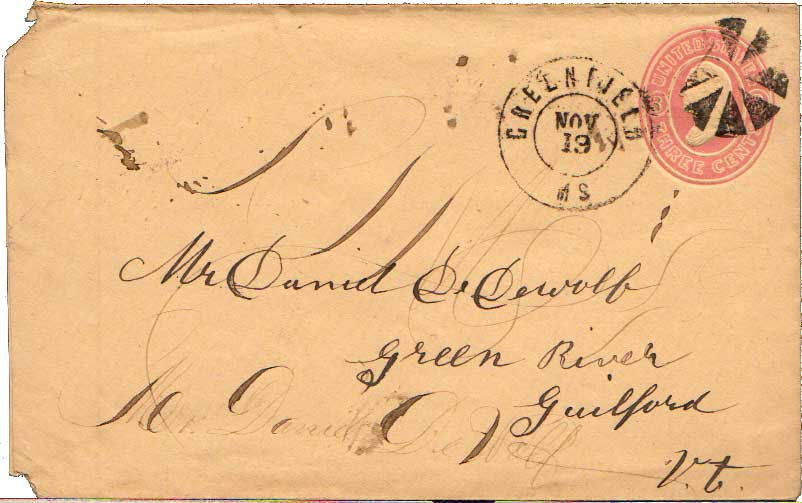 UNITED STATES
THREE CENTS
GREENFIELD
NOV
19
MS
Mr Daniel De Dewolf
Green River
Guilford
Vt.
Mr. Daniel DeWolf